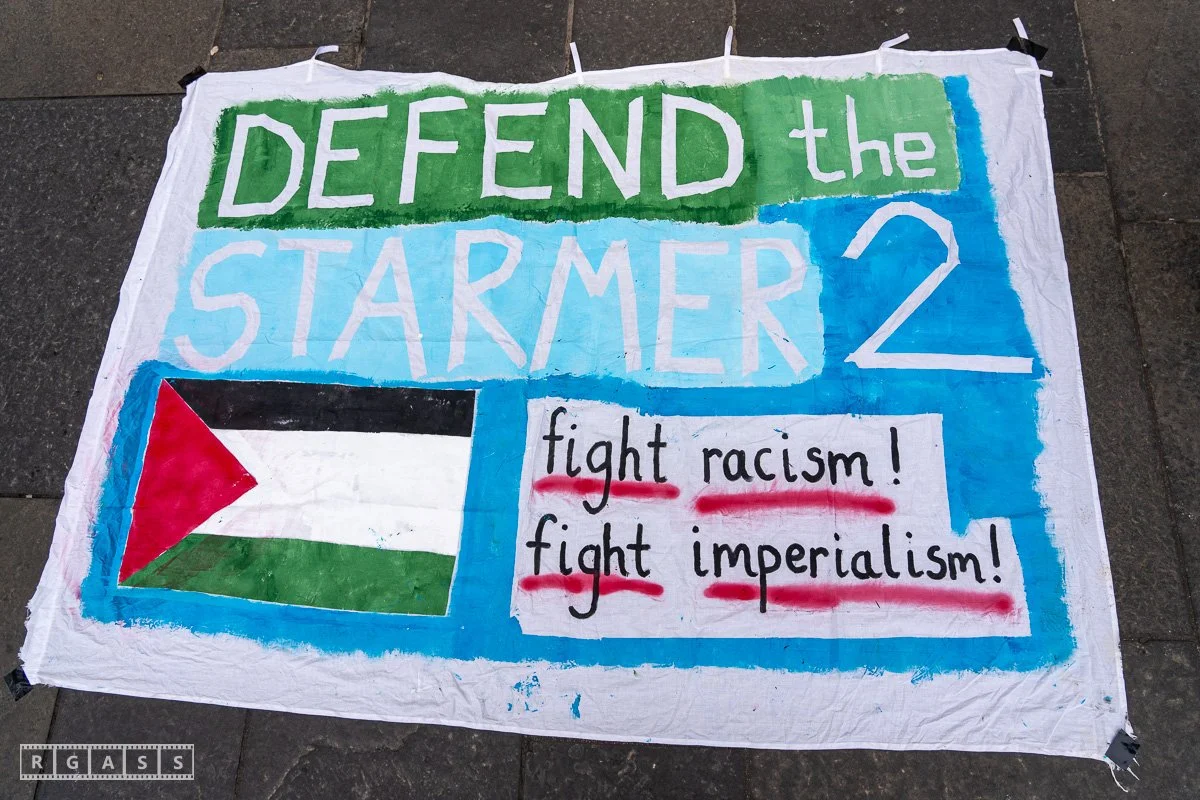 DEFEND the
STARMER 2
fight racism!
fight imperialism!
RGASS